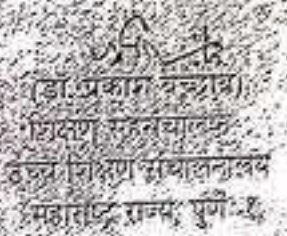 (डॉ. प्रकाश बच्छाव)
शिक्षण सहसंचालक
उच्च शिक्षण संचालनालय
महाराष्ट्र राज्य, पुणे-१.